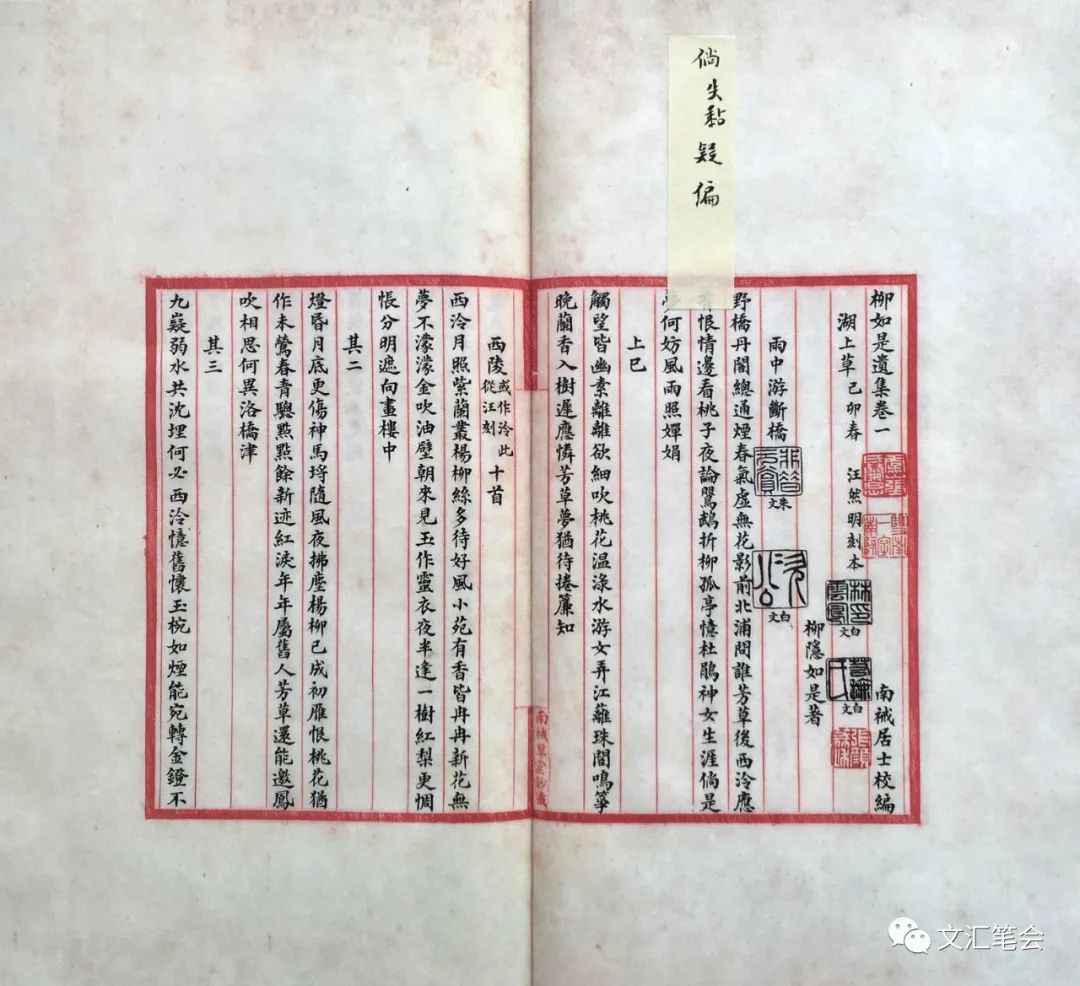 倘失黏疑偏
柳如是遺集卷一
南棫居士校編
湖上草 己卯春 汪然明刻本
柳隱如是著
雨中游斷橋
野橋丹閣總通煙春氣虛無花影前北浦問誰芳草後西泠應
恨情邊看桃子夜論鸎鵡折柳孤亭憶杜鵑神女生涯倘是
夢何妨風雨照嬋娟
上巳
觸望皆幽素離離欲細吹桃花溫淥水游女弄江蘺珠闇鳴箏
晚蘭香入樹遲應憐芳草夢猶待捲簾知
西陵 或作泠此從汪刻 十首
西泠月照紫蘭叢楊柳絲多待好風小苑有香皆冉冉新花無
夢不濛濛金吹油壁朝來見玉作靈衣夜半逢一樹紅梨更惆
悵分明遮向畫樓中
其二
燈昏月底更傷神馬埒隨風夜拂塵楊柳已成初雁恨桃花猶
作未鶯春青驄點點餘新迹紅淚年年屬舊人芳草還能邀鳳
吹相思何異洛橋津
其三
九嶷弱水共沈埋何必西泠憶舊懷玉椀如煙能宛轉金鐙不
朱文
白文
白文
白文
文汇笔会